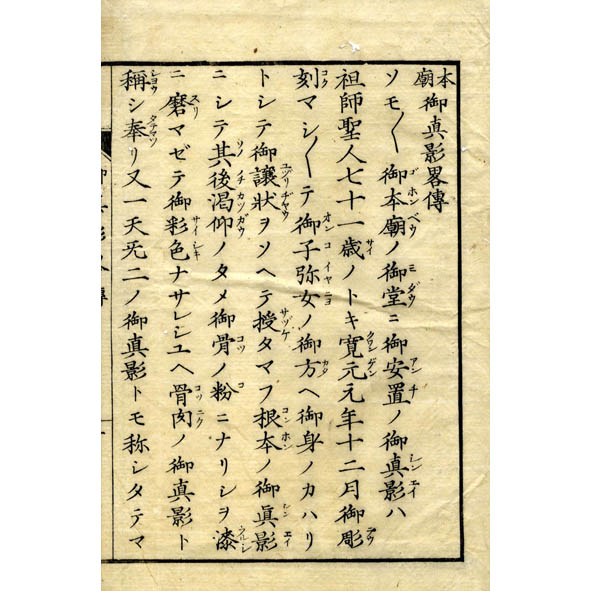 本廟御真影畧傳
ソモ〳〵御本廟ノ御堂ニ御安置ノ御真影ハ
祖師聖人七十一歳ノトキ寛元元年十二月御彫
刻マシ〳〵テ御子弥女ノ御方ヘ御身ノカハリ
トシテ御譲状ヲソヘテ授タマフ根本ノ御眞影
ニシテ其後渇仰ノタメ御骨ノ粉ニナリシヲ漆
ニ磨マゼテ御彩色ナサレシユヘ骨肉ノ御真影ト
稱シ奉リ又一天旡二ノ御真影トモ称シタテマ